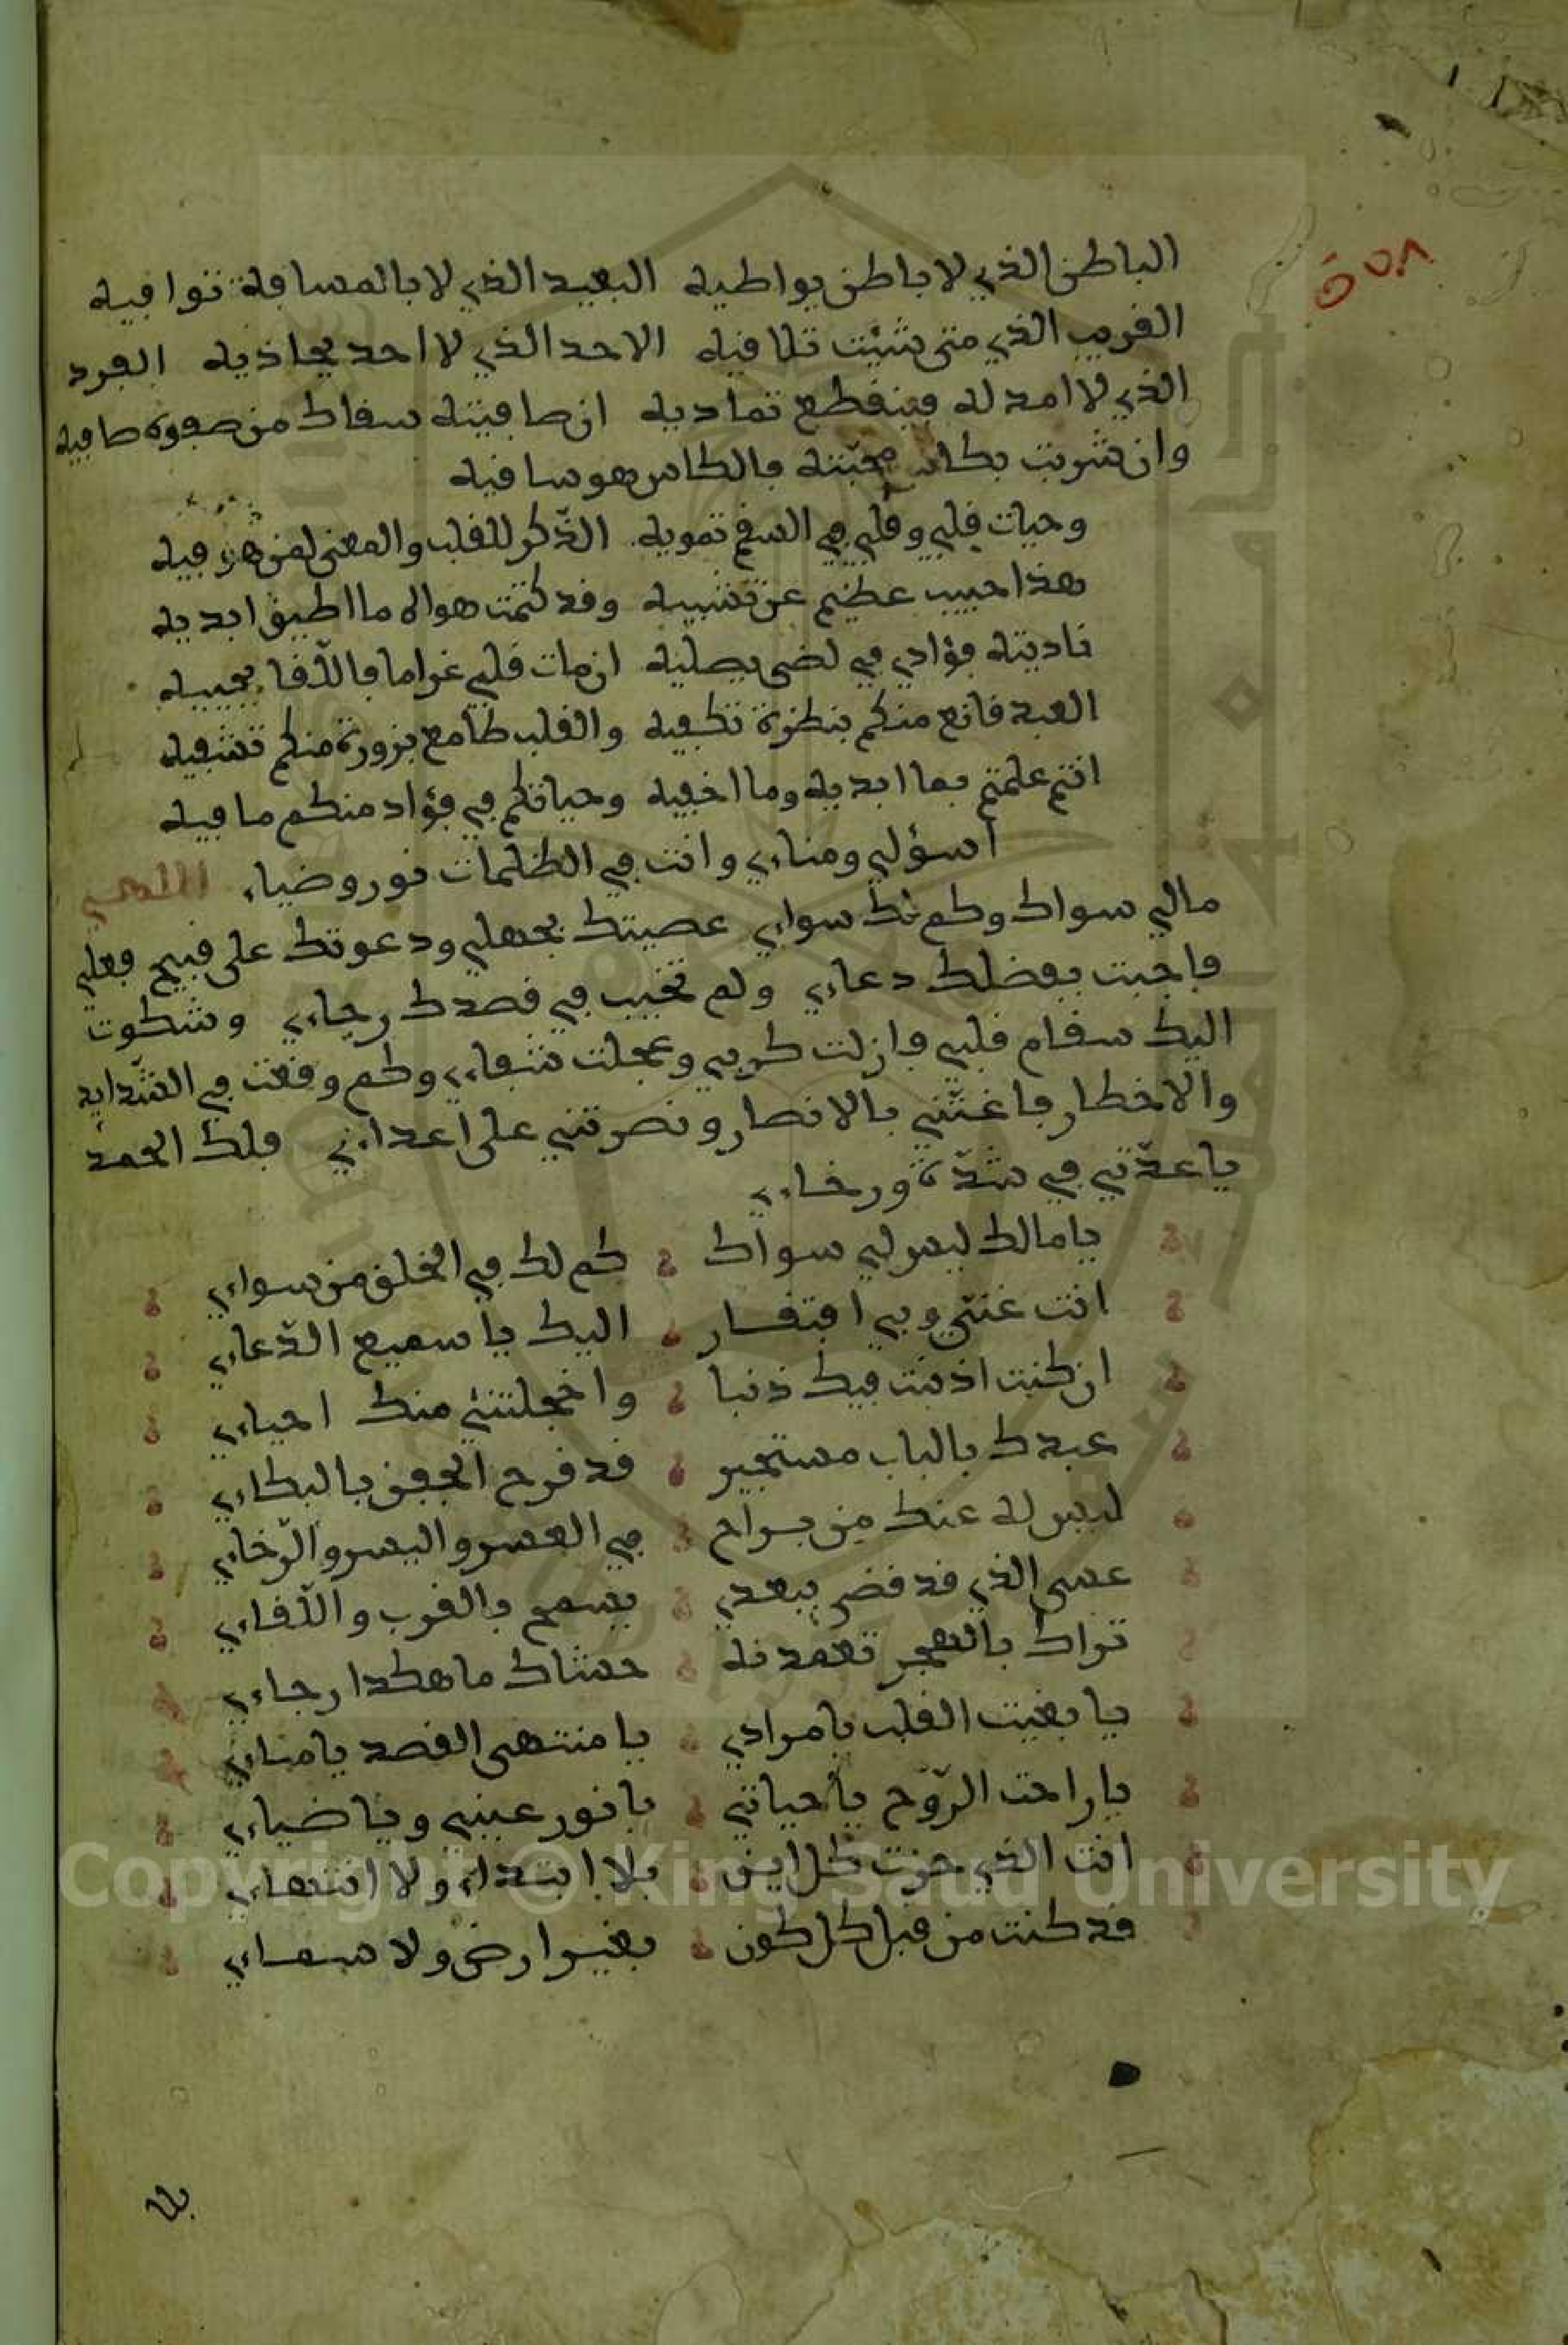 الباطن الذي لا باطن يواطيه البعيد الذي لا بالمسافة توافيه
القريب الذي متى شئت تلاقيه الاحد الذي لا احد يحاذيه الفرد
الذي لا امد له فينقطع تماديه ان صافيته سقاك من صفوة صافيه
وان شربت بكاس محبّته فالكاس هو ساقيه
وحيات قلبي وقلبي في السقم تمويه الذّكر للقلب والمعنى لمن هو فيه
هذا حبيب عظيم عن تشبيه وقد كتمت هواه ما اطيق ابديه
ناديته فؤادي في لضى يصليه ان مات قلبي غراما فاللّقا يحييه
العبد قانع منكم بنظرة تكفيه والقلب طامع بزورة منكم تشفيه
انتم علمتم بما ابديه وما اخفيه وحياتكم في فؤاد منكم ما فيه
اللهي
اسؤلي ومناءي وانت في الظلمات نور وضياء
مالي سواك وكم لك سواءي عصيتك بجهلي ودعوتك على قبيح فعلي
فاجبت بفضلك دعاءي ولم تخيب في قصدك رجاءي وشكوت
اليك سقام قلبي فازلت كربي وعجلت شفاءي وكم وقعت في الشّدايد
والاخطار فاغثتني بالانصار ونصرتني على اعداءي فلك الحمد
يا عدّتي في شدّة ورخاءي
يا مالك ليس لي سواك كم لك في الخلق من سواءي
انت غنيّ وبي افتقار اليك يا سميع الدّعاءي
ان كنت اذنبت فيك ذنبا واخجلتني منك احياءي
عبدك بالباب مستجير قد قرح الجفن بالبكاءي
ليس له عنك من براح في العسر واليسر والرّخاءي
عسى الذي قد قضى ببعدي يسمح بالقرب واللّقاءي
تراك بالهجر تعمدنه حشاك ما هكدا رجاءي
يا بغيت القلب يا مرادي يا منتهى القصد يا مناءي
يا راحت الرّوح يا حياتي يا نور عيني ويا ضياءي
انت الذي حزت كل اين بلا ابتداء ولا انتهاءي
قد كنت من قبل كل كون بغير ارض ولا سماءي
Copyright © King Saud University